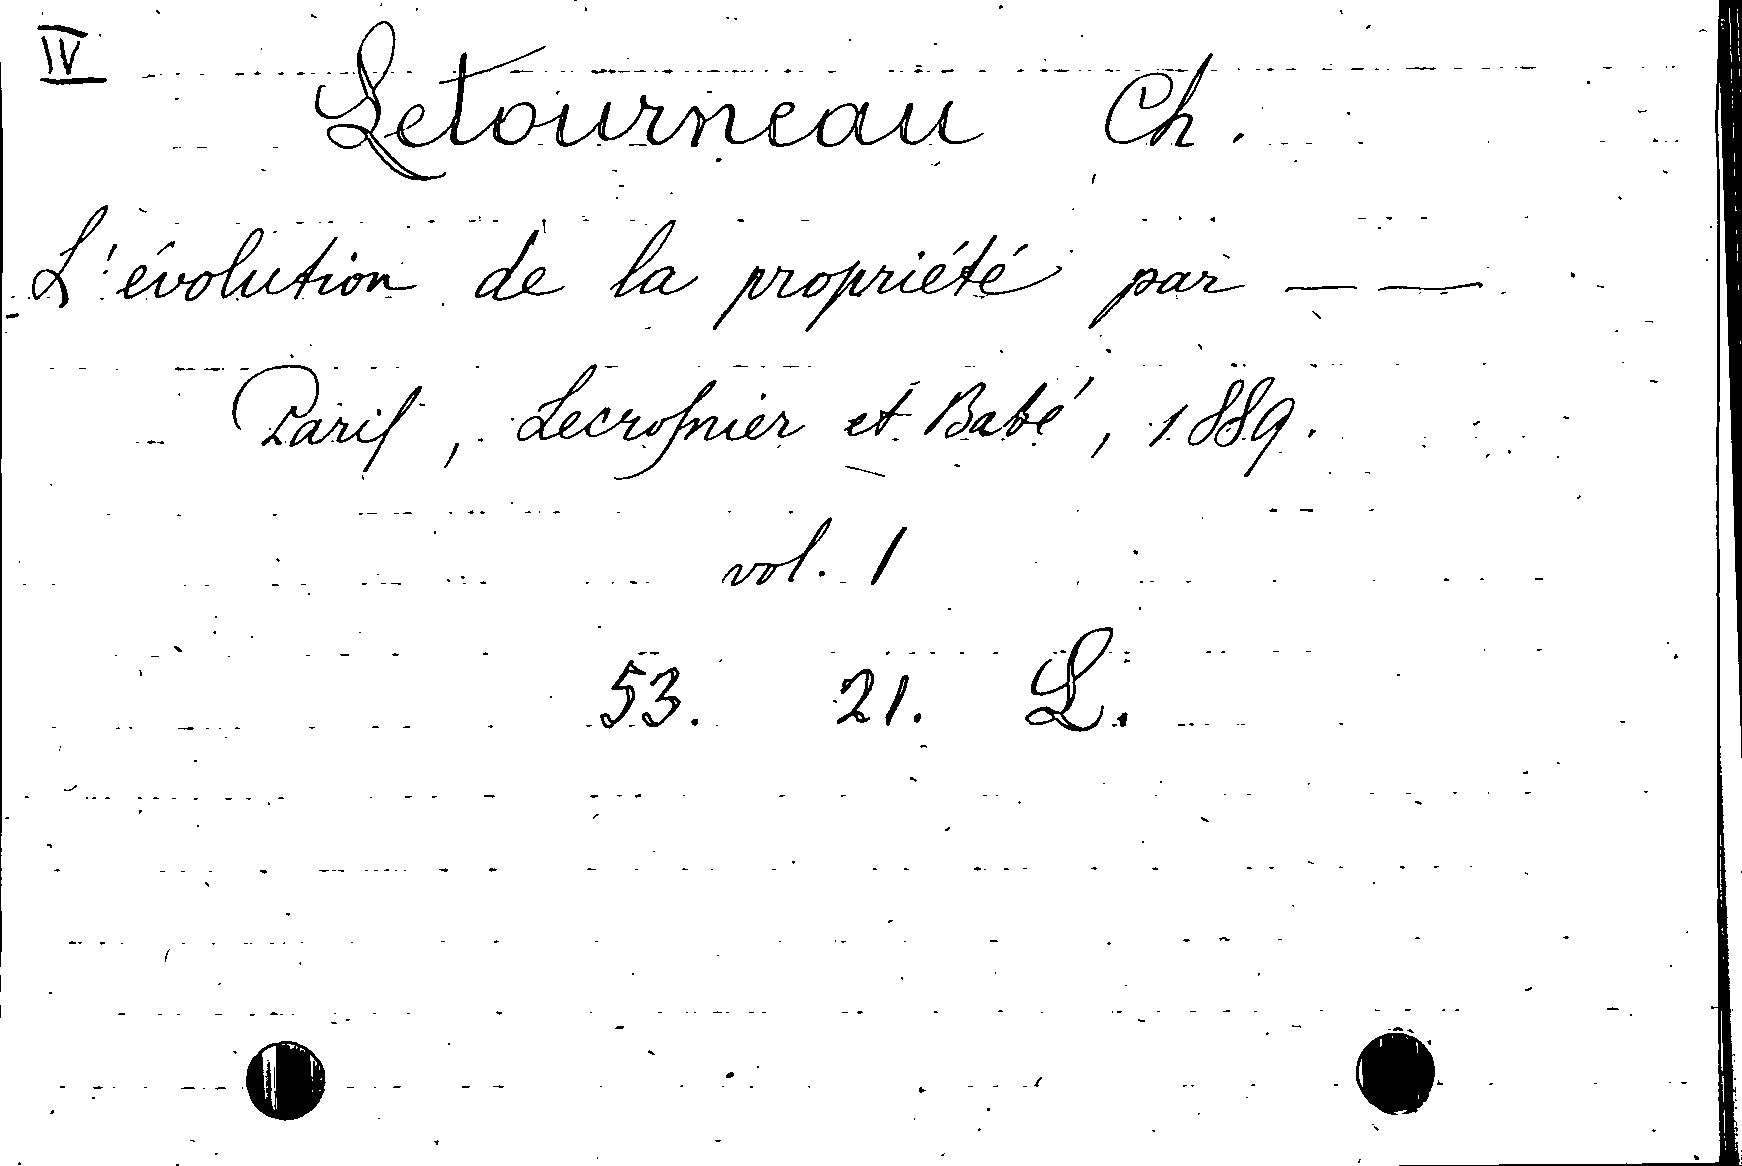 IV
Letourneau Ch.
L'évolution de la propriété par — —
Paris, Lecrosnier et Babé, 1889.
vol. 1
53. 21. L.